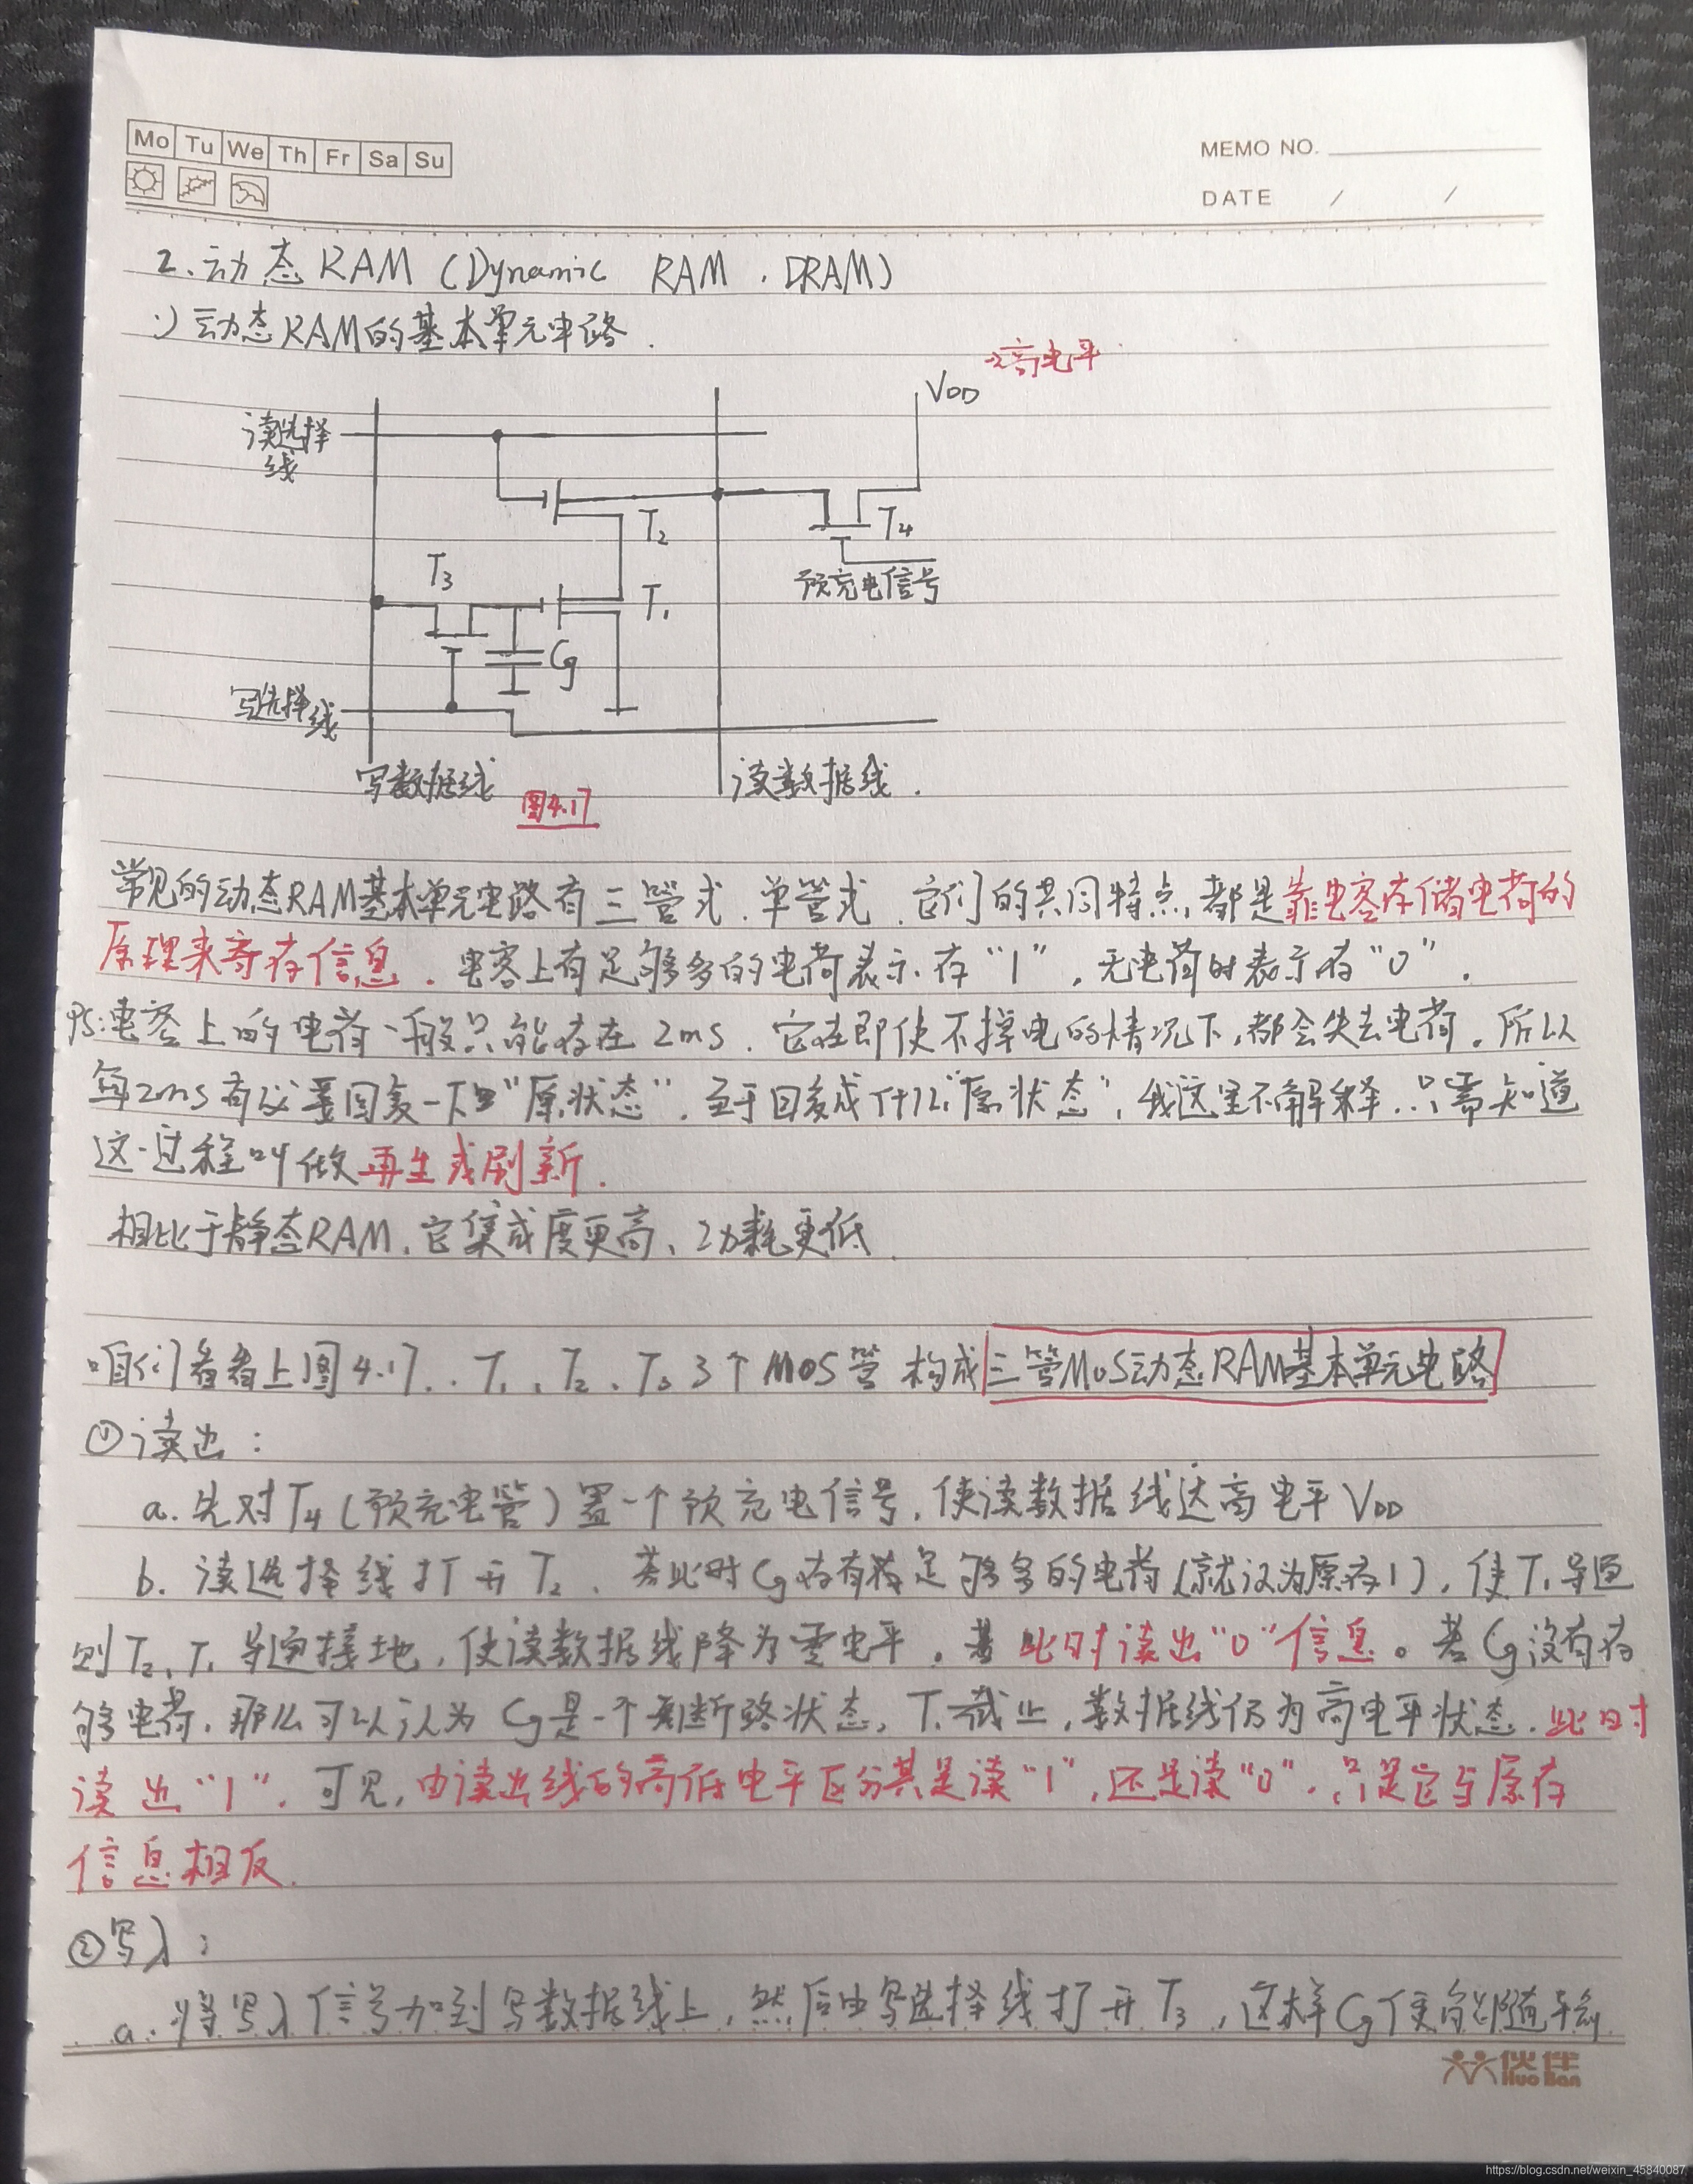 Mo Tu We Th Fr Sa Su
MEMO NO.
DATE / /
2.动态RAM (Dynamic RAM . DRAM)
1)动态RAM的基本单元电路.
→高电平
VDD
读选择
线
T2
T4
预充电信号
T3
T1
Cg
写选择线
写数据线
读数据线.
图4.17
常见的动态RAM基本单元电路有三管式.单管式.它们的共同特点都是靠电容存储电荷的
原理来寄存信息.电容上有足够多的电荷表示存“1”,无电荷时表示存“0”.
PS:电容上的电荷一般只能存在2ms.它在即使不掉电的情况下,都会失去电荷.所以
每2ms有必要回复一下“原状态”.至于回复成什么“原状态”,我这里不解释.只需知道
这一过程叫做再生或刷新.
相比于静态RAM,它集成度更高、功耗更低.
咱们看看上图4.17..T1、T2、T3 3个MOS管构成三管MOS动态RAM基本单元电路
①读出:
a.先对T4(预充电管)置一个预充电信号,使读数据线达高电平VDD
b.读选择线打开T2、若此时Cg存有足够多的电荷(就认为原存1),使T1导通
则T2、T1导通接地,使读数据线降为零电平.此时读出“0”信息。若Cg没有存
够电荷,那么可以认为Cg是一个断路状态,T1截止,数据线仍为高电平状态.此时
读出“1”.可见,由读出线的高低电平区分其是读“1”,还是读“0”.只是它与原存
信息相反.
②写入:
a.将写入信号加到写数据线上,然后由写选择线打开T3,这样Cg便能随输
伙伴
Huo Ban
https://blog.csdn.net/weixin_45840087